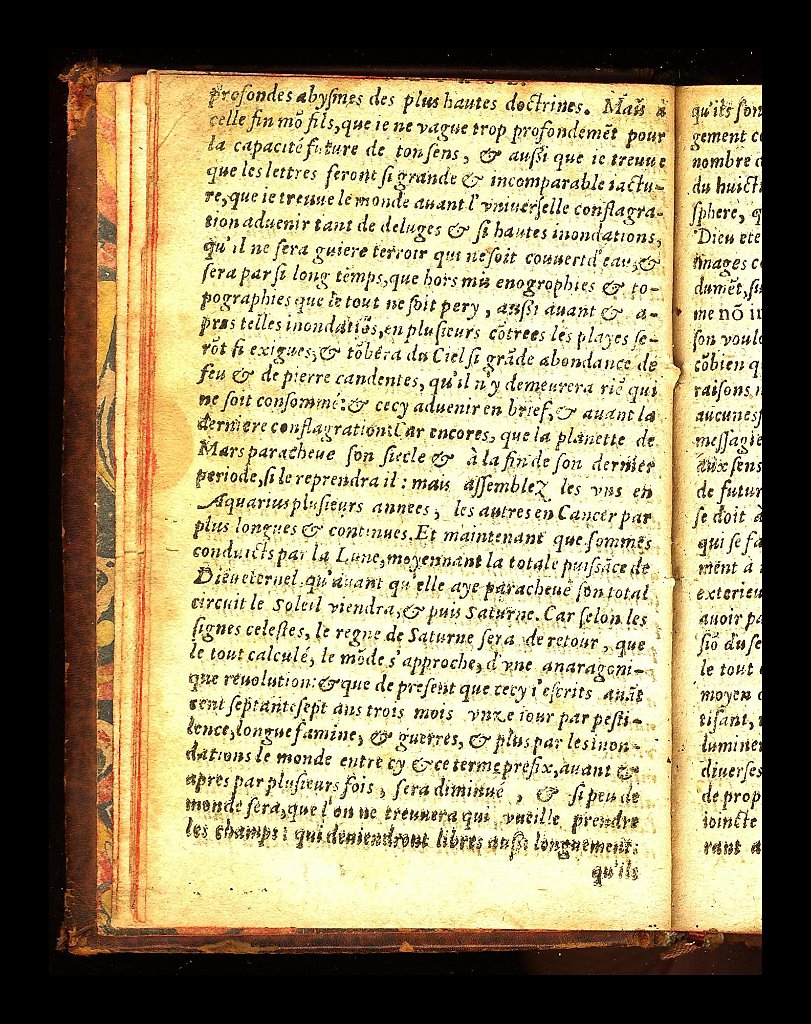 profondes abyſmes des plus hautes doctrines. Mais a
celle fin mõ fils, que ie ne vague trop profondemēt pour
la capacité future de ton ſens, & auſſi que ie treuue
que les lettres feront ſi grande & incomparable iactu-
re, que ie treuue le monde auant l'vniuerſelle conflagra-
tion aduenir tant de deluges & ſi hautes inondations,
qu'il ne ſera guiere terroir qui ne ſoit couuert d'eau, &
ſera par ſi long tēmps, que hors mis enographies & to-
pographies que le tout ne ſoit pery, auſſi auant & a-
pres telles inondatiõs, en pluſieurs cõtrees les playes ſe-
rõt ſi exigues, & tõbera du Ciel ſi grãde abondance de
feu & de pierre candentes, qu'il n'y demeurera riē qui
ne ſoit conſommé: & cecy aduenir en brief, & auant la
derniere conflagration. Car encores, que la planette de
Mars paracheue ſon ſiecle & à la fin de ſon dernier
periode, ſi le reprendra il: mais aſſemblez les vns en
Aquarius pluſieurs annees, les autres en Cancer par
plus longues & continues. Et maintenant que ſommes
conduicts par la Lune, moyennant la totale puiſſãce de
Dieu eternel, qu'auant qu'elle aye paracheué ſon total
circuit le Soleil viendra, & puis Saturne. Car ſelon les
ſignes celeſtes, le regne de Saturne ſera de retour, que
le tout calculé, le mõde s'approche, d'vne anaragoni-
que reuolution: & que de preſent que cecy i'eſcrits auāt
cent ſeptante ſept ans trois mois vnze iour par peſti-
lence, longue famine, & guerres, & plus par les inon-
dations le monde entre cy & ce terme prefix, auant &
apres par pluſieurs fois, ſera diminué, & ſi peu de
monde ſera, que l'on ne treuuera qui vueille prendre
les champs: qui deuiendront libres auſſi longuement:
qu'ils
qu'ils ſon
gement
nombre
du huict
ſphere, q
Dieu ete
images c
dumēt, ſu
me nõ in
ſon voul
cõbien q
raiſons
aucunes
meſſagie
aux ſens
de futur
ſe doit à
qui ſe fa
mēnt à
exterieu
auoir pa
ſiõ du ſe
le tout
moyen
tiſant,
lumine
diuerſes
de prop
ioincte
rant a